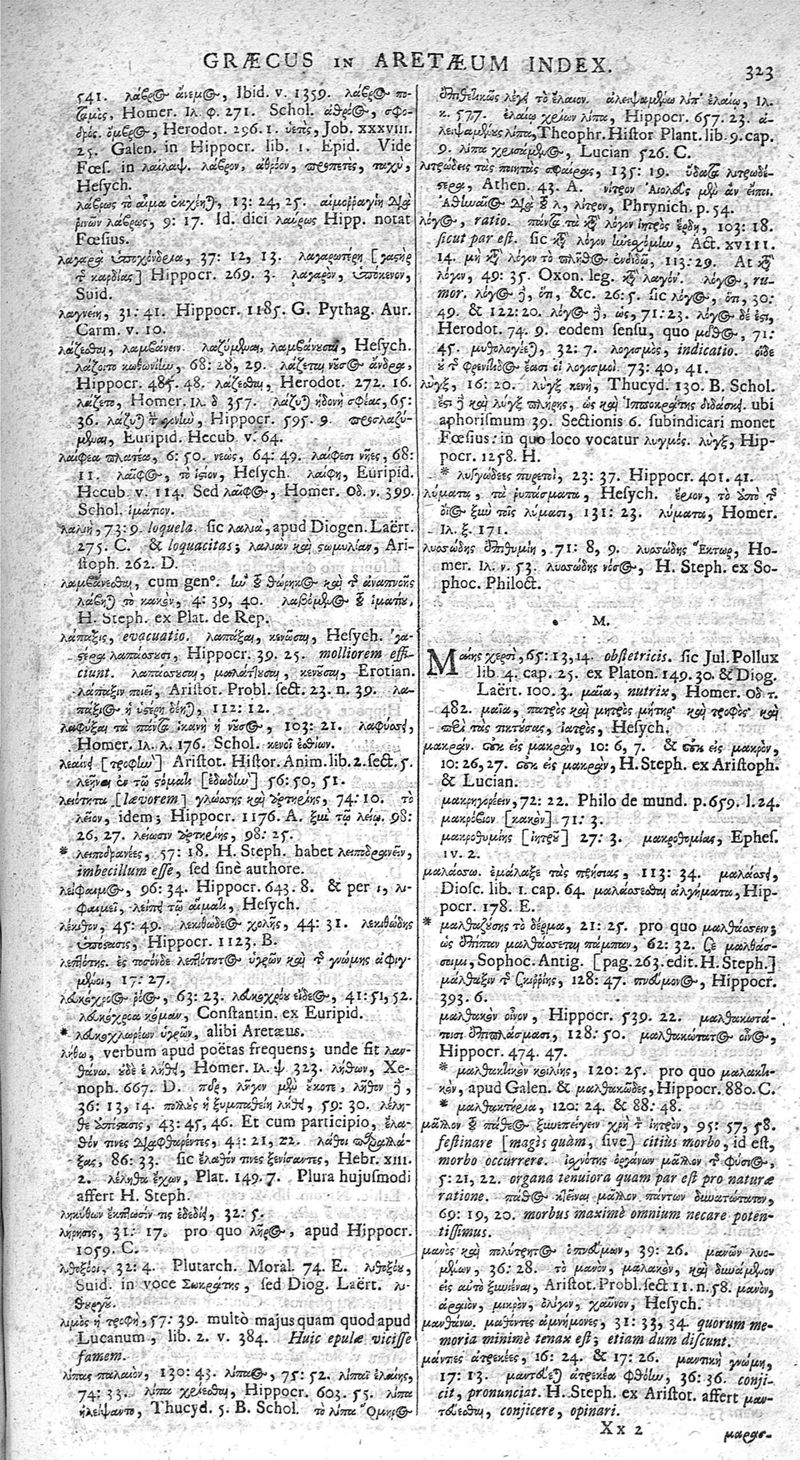 GRÆCUS IN ARETÆUM INDEX.
323
541. λάβρος ἄνεμος, Ibid. v. 1359. λάβρος πο-
ταμὸς, Homer. Ιλ. φ. 271. Schol. ἀθρόος, σφο-
δρός. ὄμβρος, Herodot. 296. 1. ὑετὸς, Job. XXXVIII.
25. Galen. in Hippocr. lib. 1. Epid. Vide
Fœs. in λαίλαψ. λάβρον, ἀθρόον, προπετὲς, ταχὺ,
Hesych.
λάβρως τὸ αἷμα ἐκχέηται, 13: 24, 25. αἱμοῤῥαγίη διὰ
ῥινῶν λάβρως, 9: 17. Id. dici λαύρως Hipp. notat
Fœsius.
λαγαρὰ ὑποχόνδρια, 37: 12, 13. λαγαρωτέρη [γαστὴρ
τῆς καρδίας] Hippocr. 269. 3. λαγαρὸν, ὑπόκενον,
Suid.
λαγνείη, 31: 41. Hippocr. 1185. G. Pythag. Aur.
Carm. v. 10.
λάζεσθαι, λαμβάνειν. λαζύμεναι, λαμβάνουσαι, Hesych.
λάζοιτο 68: 28, 29. λάζεται νοῦσος ἄνδρα,
Hippocr. 485. 48. λάζεσθαι, Herodot. 272. 16.
λάζετο, Homer. Ιλ. δ. 357. λάζυται ἡδονὴ σφέας, 65:
36. λάζυται Hippocr. 595. 9. προσλαζύ-
μεναι, Euripid. Hecub. v. 64.
λαίφεα πλατέα, 6: 50. νεὼς, 64: 49. λαίφεσι νῆες, 68:
11. λαῖφος, τὸ ἱστίον, Hesych. λαίφη, Euripid.
Hecub. v. 114. Sed λαῖφος, Homer. Οδ. ν. 399.
Schol. ἱμάτιον.
λαλιὴ, 73: 9. loquela. sic λαλιὰ, apud Diogen. Laërt.
275. C. & loquacitas; λαλιὰν καὶ στωμυλίαν, Ari-
stoph. 262. D.
λαμβάνεσθαι, cum genº. ἢν τοῦ θώρηκος καὶ τῆς ἀναπνοῆς
λάβηται τὸ κακὸν, 4: 39, 40. λαβόμενος τοῦ ἱματίου,
H. Steph. ex Plat. de Rep.
λάπαξις, evacuatio. λαπάξαι, κενῶσαι, Hesych. γα-
στέρα λαπάσσουσι, Hippocr. 39. 25. molliorem effi-
ciunt. λαπάσσουσι, μαλάττουσι, κενοῦσι, Erotian.
λάπαξιν ποιεῖ, Aristot. Probl. sect. 23. n. 39. λα-
πάξιος ἡ ὑστέρη δέηται, 112: 12.
λαφύξαι τὰ πάντα ἱκανὴ ἡ νοῦσος, 103: 21. λαφύσσει,
Homer. Ιλ. λ. 176. Schol. κενοῖ ἐσθίων.
λεαίνει [τροφὴν] Aristot. Histor. Anim. lib. 2. sect. 5.
λεῆναι ἐν τῷ στόματι [ἐδωδὴν] 56: 50, 51.
λειότητα [lævorem] γλώσσης καὶ ἀρτηρίης, 74: 10. τὸ
λεῖον, idem; Hippocr. 1176. A. ξὺν τῷ λείῳ. 98:
26, 27. λείωσιν ἀρτηρίης, 98: 25.
* λειποδρανέες, 57: 18. H. Steph. habet λειποδρανεῖν,
imbecillum esse, sed sinè authore.
λείφαιμος, 96: 34. Hippocr. 643. 8. & per ι, λι-
φαιμεῖ, λείπει τῷ αἵματι, Hesych.
λέκιθον, 45: 49. λεκιθώδεος χολῆς, 44: 31. λεκιθώδης
ὑπόστασις, Hippocr. 1123. B.
λεπτότης. ἐς τοσόνδε λεπτότητος ὑγρῶν καὶ τῆς γνώμης ἀφιγ-
μένοι, 17: 27.
λευκόχροος ῥόος, 63: 23. λευκόχροοι εἴδεος, 41: 51, 52.
λευκόχροα κόμαν, Constantin. ex Euripid.
* λευκοχλώρων ὑγρῶν, alibi Aretæus.
λήθω, verbum apud poëtas frequens; unde fit λαν-
θάνω. οὐδέ ἑ λήθει, Homer. Ιλ. ψ 323. λήθων, Xe-
noph. 667. D. πῦρ, λῆγον μὲν οὔκοτε, λῆθον δὲ,
36: 13, 14. πολλοὺς ἡ ξυμπαθείη λήθει, 59: 30. λέλη-
θε ὑπόστασις, 43: 45, 46. Et cum participio, ἔλα-
θόν τινες διαφθαρέντες, 41: 21, 22. λάθοι παραλλά-
ξας, 86: 33. sic ἔλαθόν τινες ξενίσαντες, Hebr. XIII.
2. λέληθα ἔχων, Plat. 149. 7. Plura hujusmodi
affert H. Steph.
ληκύθων ἔκπλωσίν τις ἐδέδιει, 32: 5.
λήρησις, 31: 17. pro quo λῆρος, apud Hippocr.
1059. C.
λιθοξόοι, 32: 4. Plutarch. Moral. 74. E. λιθοξόου,
Suid. in voce Σωκράτης, sed Diog. Laërt. λι-
θουργοῦ.
λιμὸς ἡ τροφὴ, 57: 39. multò majus quam quod apud
Lucanum, lib. 2. v. 384. Huic epulæ vicisse
famem.
λίπας παλαιὸν, 130: 43. λίπαος, 75: 52. λίπαϊ ἐλαίης,
74: 33. λίπα χρίεσθαι, Hippocr. 603. 55. λίπα
ἠλείψαντο, Thucyd. 5. B. Schol. τὸ λίπα Ὅμηρος
ἐπιθετικῶς λέγει τὸ ἔλαιον. ἀλειψαμένω λίπ᾽ ἐλαίῳ, Ιλ.
κ. 577. ἐλαίῳ χρίων λίπα, Hippocr. 657. 23. ἀ-
λειψαμένους λίπα, Theophr. Histor Plant. lib. 9. cap.
9. λίπα χρισάμενος, Lucian 526. C.
λιτρώδεις τὰς ποιητὰς σφαίρας, 135: 19. ὕδατα λιτρωδέ-
στερα, Athen. 43. A. νίτρον Αἰολεὺς μὲν ἂν εἴποι.
Ἀθηναῖος διὰ τοῦ λ, λίτρον, Phrynich. p. 54.
λόγος, ratio. πάντα τὰ κατὰ λόγον ἰητρὸς ἔρδη, 103: 18.
sicut par est. sic κατὰ λόγον ἠνεσχόμην, Act. XVIII.
14. μὴ κατὰ λόγον τὸ πλῆθος ἐνδιδῷ, 113: 29. At κατὰ
λόγον, 49: 35. Oxon. leg. κατὰ λαγόν. λόγος, ru-
mor. λόγος δὲ, ὅτι, &c. 26: 5. sic λόγος, ὅτι, 30:
49. & 122: 20. λόγος δὲ, ὡς, 71: 23. λόγος δέ ἐστι,
Herodot. 74. 9. eodem sensu, quo μῦθος, 71:
45. μυθολογέεται, 32: 7. λογισμὸς, indicatio. οἵδε
τοῦ φρενιτικοῦ ἔασι οἱ λογισμοί. 73: 40, 41.
λὺγξ, 16: 20. λὺγξ κενὴ, Thucyd. 130. B. Schol.
ἔστι δὲ καὶ λὺγξ πλήρης, ὡς καὶ Ἱπποκράτης διδάσκει. ubi
aphorismum 39. Sectionis 6. subindicari monet
Fœsius: in quo loco vocatur λυγμός. λὺγξ, Hip-
pocr. 1258. H.
* λυγγώδεες πυρετοὶ, 23: 37. Hippocr. 401. 41.
λύματα, τὰ ῥυπάσματα, Hesych. ἔριον, τὸ ἀπὸ τῆς
ὄϊος ξὺν τοῖς λύμασι, 131: 23. λύματα, Homer.
Ιλ. ξ. 171.
λυσσώδης ἐπιθυμίη, 71: 8, 9. λυσσώδης Ἕκτωρ, Ho-
mer. Ιλ. ν. 53. λυσσώδης νόσος, H. Steph. ex So-
phoc. Philoct.
M.
Μαίης χερσὶ, 65: 13, 14. obstetricis. sic Jul. Pollux
lib. 4. cap. 25. ex Platon. 149. 30. & Diog.
Laërt. 100. 3. μαῖα, nutrix, Homer. Οδ τ.
482. μαῖα, πατρὸς καὶ μητρὸς μήτηρ· καὶ τροφός· καὶ
περὶ τὰς τικτούσας, ἰατρὸς, Hesych.
μακράν. οὐκ εἰς μακρὰν, 10: 6, 7. & οὐκ εἰς μακρὸν,
10: 26, 27. οὐκ εἰς μακρὰν, H. Steph. ex Aristoph.
& Lucian.
μακρηγορέειν, 72: 22. Philo de mund. p. 659. l. 24.
μακρόβιον [κακὸν] 71: 3.
μακροθυμίης [ἰητροῦ] 27: 3. μακροθυμίας, Ephes.
IV. 2.
μαλάσσω. ἐμάλαξε τὰς πρήσιας, 113: 34. μαλάσσει,
Diosc. lib. 1. cap. 64. μαλάσσεσθαι ἀλγήματα, Hip-
pocr. 178. E.
* μαλθαζούσης τὸ δέρμα, 21: 25. pro quo μαλθάσσειν;
ὡς ἐπίπαν μαλθάσσεται πάμπαν, 62: 32. σε μαλθάσ-
σομαι, Sophoc. Antig. [pag. 263. edit. H. Steph.]
μάλθαξιν τῆς σκιῤῥίης, 128: 47. πνεύμονος, Hippocr.
393. 6.
μαλθακὸν οἶνον, Hippocr. 539. 22. μαλθακωτά-
τοισι ἐπιπλάσμασι, 128: 50. μαλθακώτατος οἶνος,
Hippocr. 474. 47.
* μαλθακτικὸν κοιλίης, 120: 25. pro quo μαλακτι-
κὸν, apud Galen. & μαλθακῶδες, Hippocr. 880. C.
* μαλθακτήρια, 120: 24. & 88: 48.
μᾶλλον τοῦ πάθεος ξυνεπείγειν χρὴ τὸν ἰητρὸν, 95: 57, 58.
festinare [magis quàm, sive] citiùs morbo, id est,
morbo occurrere. ἰσχνότης ὀργάνων μᾶλλον τῆς φύσιος,
5: 21, 22. organa tenuiora quam par est pro naturæ
ratione. πάθος κτεῖναι μᾶλλον πάντων δυνατώτατον,
69: 19, 20. morbus maximè omnium necare poten-
tissimus.
μανὸς καὶ πολύτρητος ὁ πνεύμων, 39: 26. μανῶν λυο-
μένων, 36: 28. τὸ μανὸν, μαλακὸν, καὶ δυνάμενον
εἰς αὐτὸ ξυνιέναι, Aristot. Probl. sect 11. n. 58. μανὸν,
ἀραιὸν, μικρὸν, ὀλίγον, χαῦνον, Hesych.
μανθάνω. μαθόντες ἀμνήμονες, 31: 33, 34. quorum me-
moria minimè tenax est; etiam dum discunt.
μάντιες ἀτρεκέες, 16: 24. & 17: 26. μαντικὴ γνώμη,
17: 13. μαντεύεται ἀτρεκέα φθόην, 36: 36. conji-
cit, pronunciat. H. Steph. ex Aristot. affert μαν-
τεύεσθαι, conjicere, opinari.
Xx 2
μαρασ-